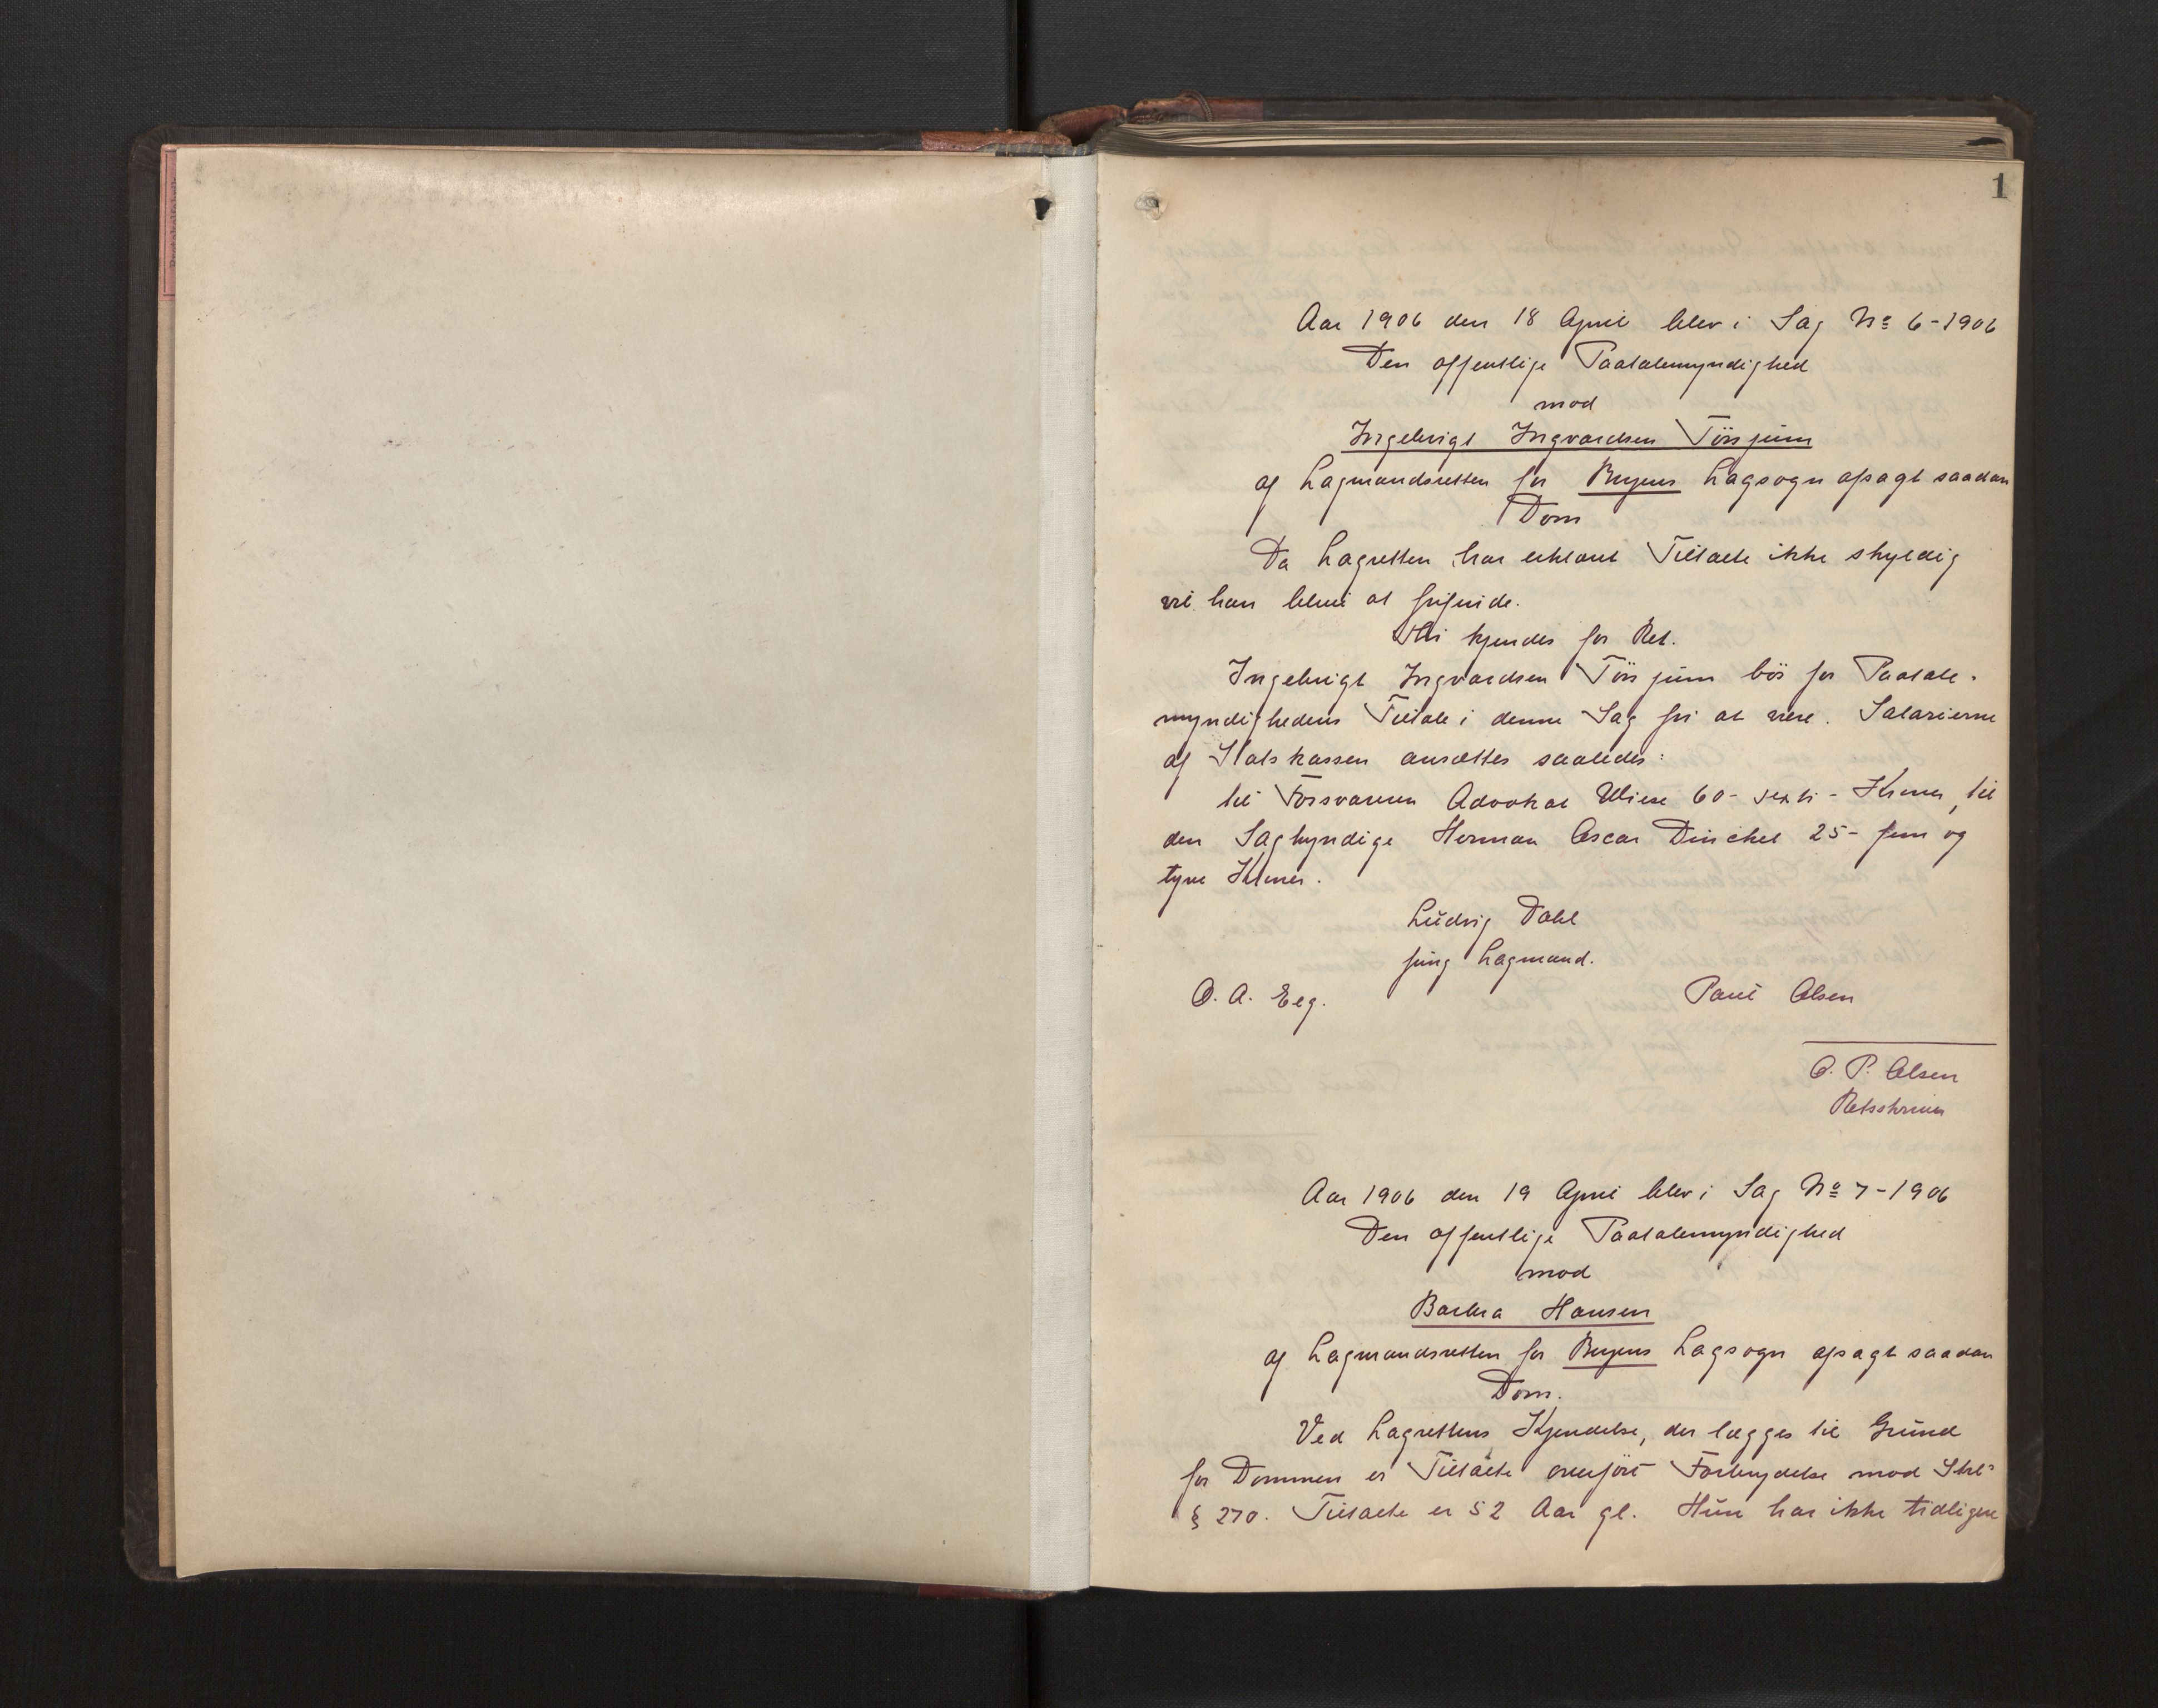 1
Aar 1906 den 18 April blev i Sag No 6-1906
Den offentlige Paatalemyndighed
mod
Ingebrigt Ingvardsen Tönjum
af Lagmandsretten for Bergens Lagsogn afsagt saadan
Dom
Da Lagretten har erklært Tiltalte ikke skyldig
vil han blive at frifinde.
Thi kjendes for Ret.
Ingebrigt Ingvardsen Tönjum bör for Paatale-
myndighedens Tiltale i denne Sag fri at være. Salarierne
af Statskassen ansættes saaledes:
til Forsvareren Advokat Wiese 60- seksti - Kroner, til
den Sagkyndige Herman Oscar 25- fem og
tyve Kroner.
Ludvig Dahl
fung Lagmand.
O. A. Eeg. Paul Olsen
O. P. Olsen
Retsskriver
Aar 1906 den 19 April blev i Sag No 7-1906
Den offentlige Paatalemyndighed
mod
Barbra Hansen
af Lagmandsretten for Bergens Lagsogn afsagt saadan
Dom.
Ved Lagrettens Kjendelse, der lægges til Grund
for Dommen er Tiltalte overfört Forbrydelse mod Strl's
§ 270. Tiltalte er 52 Aar gl. Hun har ikke tidligere